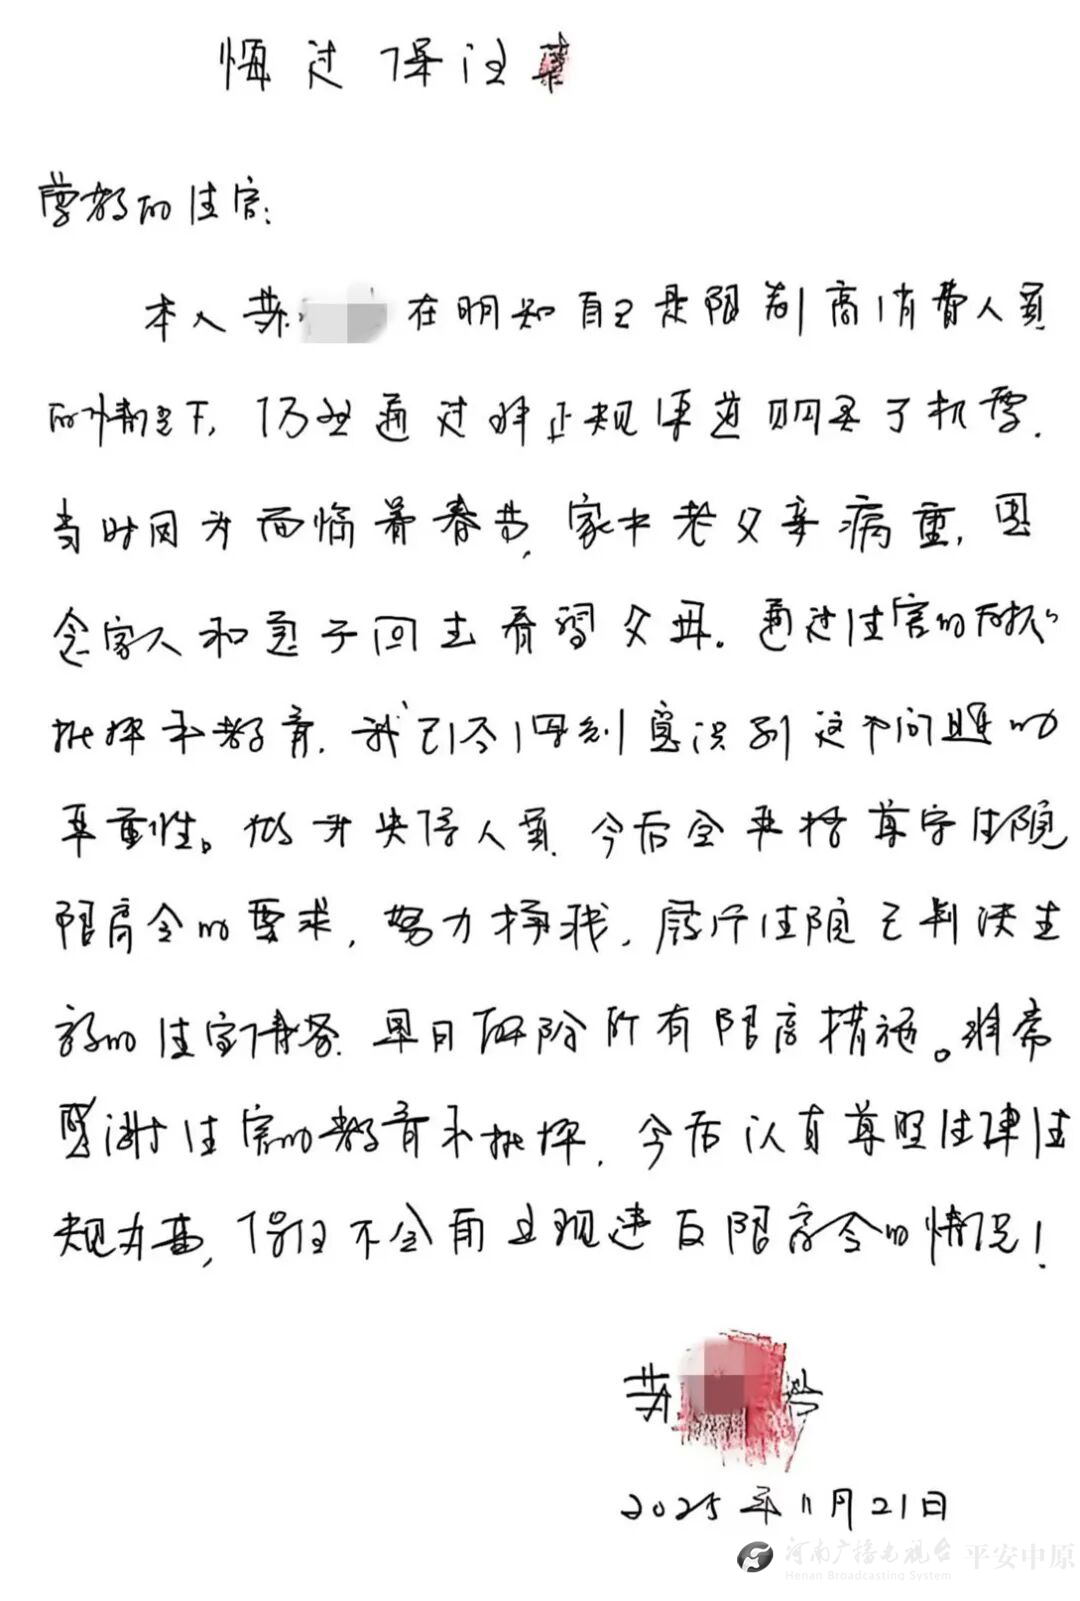 悔过保证书
尊敬的法官：
本人 在明知自己是限制高消费人员
的情况下，仍然通过非正规渠道购买了机票.
当时因为面临着春节，家中老父亲病重，思
念家人和急于回去看望父母。通过法官的
批评和教育，我已经深刻意识到这个问题的
严重性。做为失信人员，今后会严格遵守法院
限高令的要求，努力挣钱，履行法院已判决生
效的法定债务，早日解除所有限高措施。非常
感谢法官的教育和批评，今后认真遵照法律法
规办事，保证不会再出现违反限高令的情况！
2025年11月21日
河南广播电视台 平安中原
Henan Broadcasting System